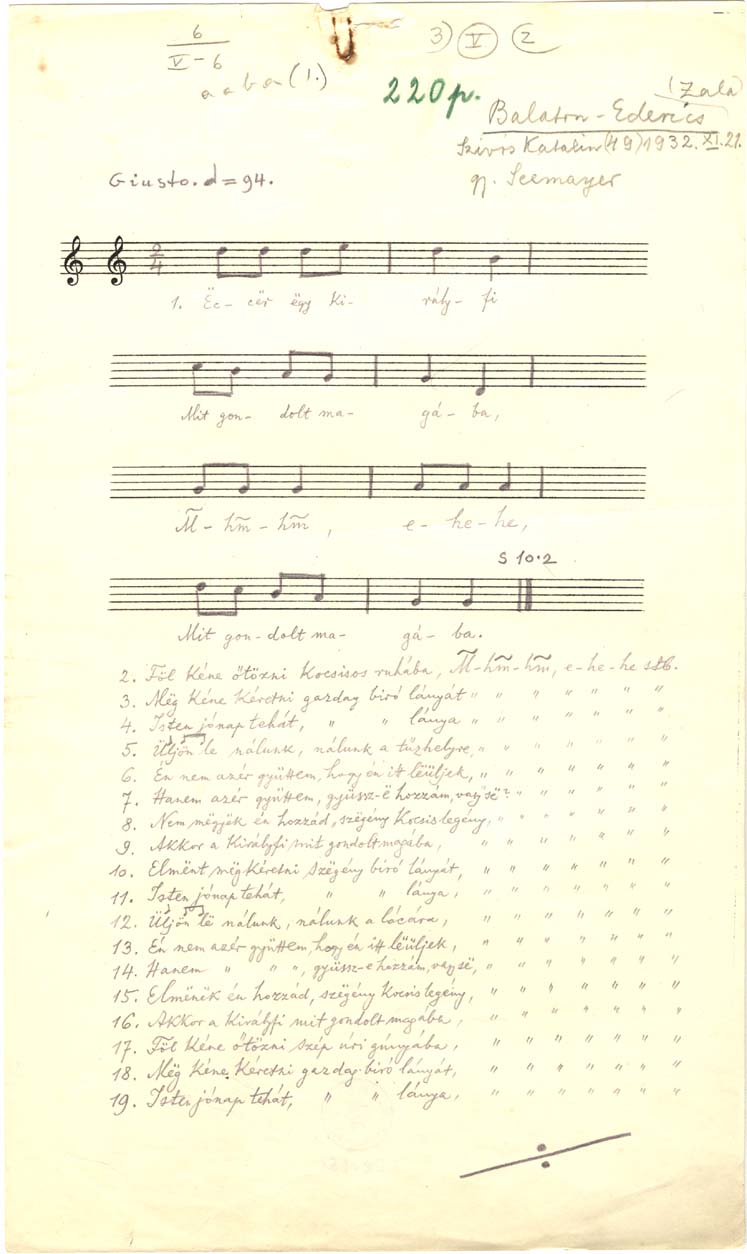 6
V-6
a a b a (1.)
3) V 2
220 p.
(Zala)
Balaton-Ederics
Szivós Katalin (49) 1932. XI. 21.
gy. Seemayer
Giusto. d = 94.
2
4
1. Ëc- cër ëgy Ki- rály- fi
Mit gon- dolt ma- gá- ba,
M- hm - hm, e- he- he,
S 10·2
Mit gon-dolt ma- gá- ba.
2. Föl Kéne ötözni Kocsisos ruhába, M-hm-hm, e-he-he stb.
3. Mëg Kéne Kéretni gazdag biró lányát " " " " " " "
4. Isten jónap tehát, " " lánya " " " " " " "
5. Üljön le nálunk, nálunk a tűzhelyre, " " " " " " "
6. Én nem azér gyüttem, hogy én itt lëüljek, " " " " " " "
7. Hanem azér gyüttem, gyüssz-ë hozzám, vagy së? " " " " " " "
8. Nem mëgyëk én hozzád, szëgény Kocsislegény, " " " " " " "
9. Akkor a Királyfi mit gondolt magába, " " " " " " "
10. Elmënt mëgkéretni szëgény biró lányát, " " " " " " "
11. Isten jónap tehát, " " lánya, " " " " " " "
12. Üljön lë nálunk, nálunk a lócára, " " " " " " "
13. Én nem azér gyüttem, hogy én itt lëüljek, " " " " " " "
14. Hanem " " ", gyüssz-e hozzám, vagy së, " " " " " " "
15. Elmënëk én hozzád, szëgény Kocsislegény, " " " " " " "
16. Akkor a Királyfi mit gondolt magába, " " " " " " "
17. Föl Kéne ötözni szép úri gúnyába, " " " " " " "
18. Mëg Kéne Kéretni gazdag biró lányát, " " " " " " "
19. Isten jónap tehát, " " lánya, " " " " " " "